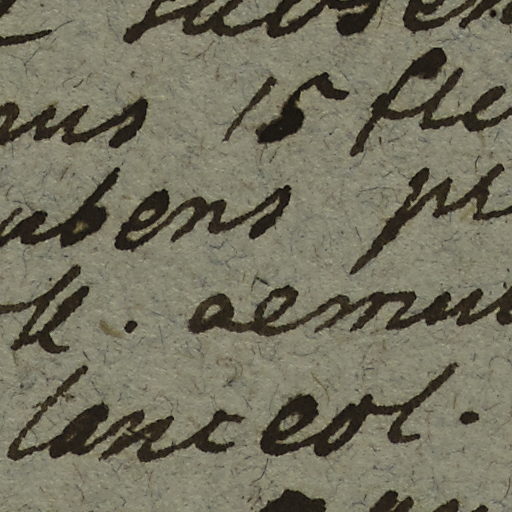 rus 15 fle
abens pr
ll. aemul
lanceol.